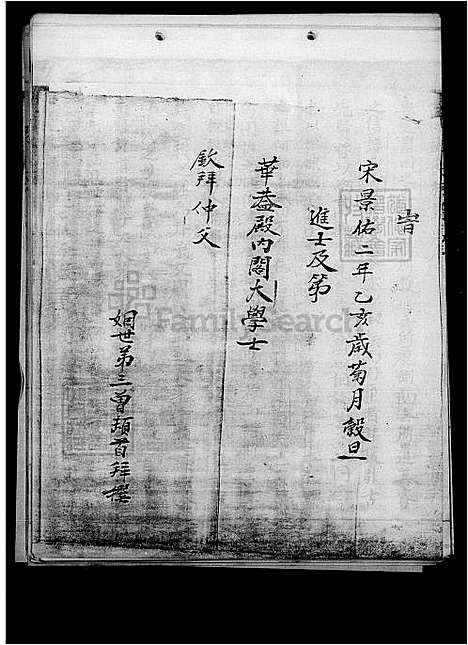 旹
宋景佑二年乙亥歲菊月穀旦
進士及第
華蓋殿內閣大學士
欽拜仲父
姻世弟三曾頓首拜撰
FamilySearch